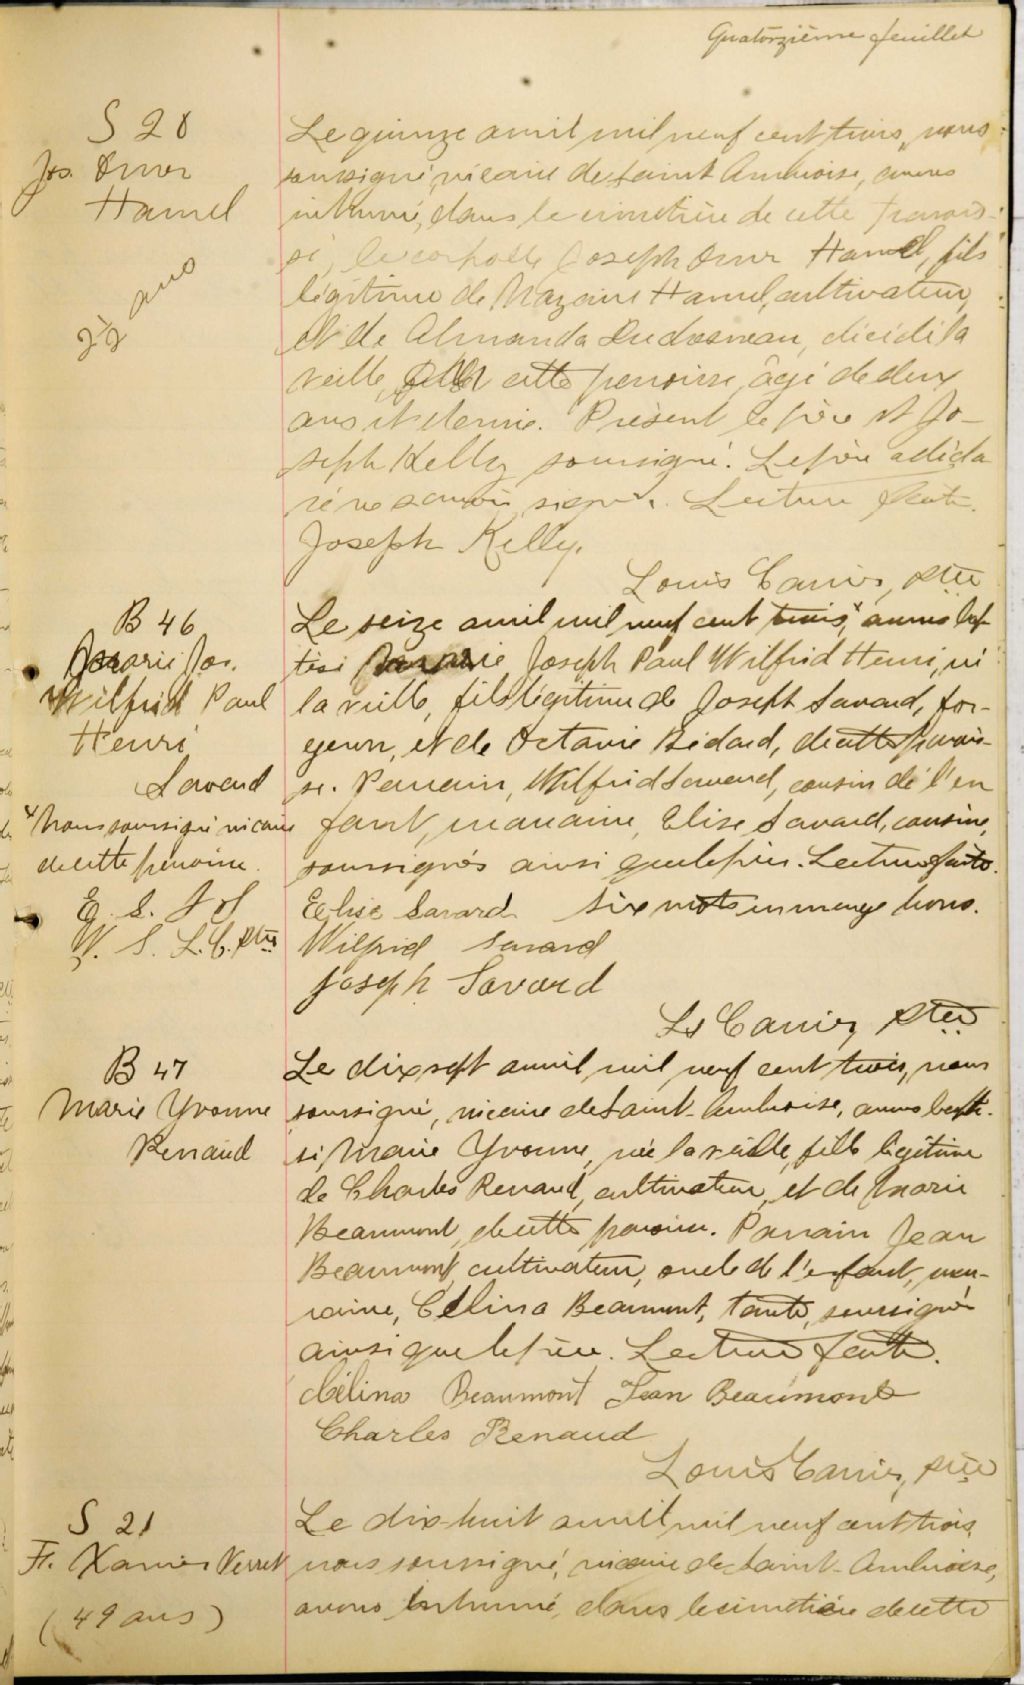 Quatorzième feuillet
S 20
Jos. Omer
Hamel
2½ ans
Le quinze avril mil neuf cent trois, nous
soussigné, vicaire de Saint Ambroise, avons
inhumé, dans le cimetière de cette parois-
se, le corps de Joseph Omer Hamel, fils
légitime de Nazaire Hamel, cultivateur,
et de Almanda, décédé la
veille, de cette paroisse, âgé de deux
ans et demie. Présent le père et Jo-
seph Kelly soussigné. Le père a décla
ré ne savoir signer. Lecture faite.
Joseph Kelly.
Louis Carrier, ptre
B 46
Marie Jos.
Wilfrid Paul
Henri
Savard
x Nous soussigné vicaire
de cette paroisse.
E. S. J S
W. S. L. C. ptre
Le seize avril mil neuf cent trois,x avons bap-
tisé Joseph Paul Wilfrid Henri, né
la veille, fils légitime de Joseph Savard, for-
geron, et de Octavie Bédard, de cette parois-
se. Parrain, Wilfrid Savard, cousin de l'en
fant, marraine, Elise Savard, cousine,
soussignés ainsi que le père. Lecture faite.
Eglise Savard Six mots en marge bons.
Wilfrid Savard
Joseph Savard
Ls Carrier, ptre
B 47
Marie Yvonne
Renaud
Le dix sept avril, mil neuf cent trois, nous
soussigné, vicaire de Saint-Ambroise, avons bapti-
sé Marie Yvonne, née la veille, fille légitime
de Charles Renaud, cultivateur, et de Marie
Beaumont, de cette paroisse. Parrain Jean
Beaumont, cultivateur, oncle de l'enfant, mar-
raine, Célina Beaumont, tante, soussignés
ainsi que le père. Lecture faite.
Célina Beaumont Jean Beaumont
Charles Renaud
Louis Carrier, ptre
S 21
F. Xavier Verret
(49 ans)
Le dix-huit avril mil neuf cent trois,
nous soussigné, vicaire de Saint-Ambroise,
avons inhumé, dans le cimetière de cette